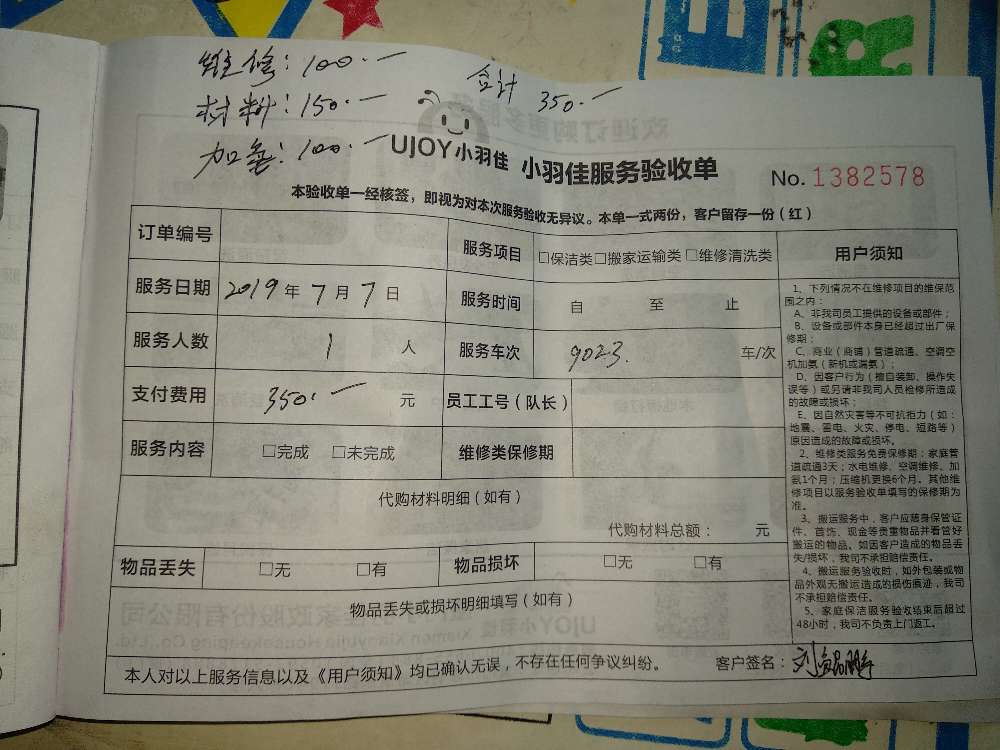 维修：100.一
材料：150.一
合计 350.一
加氨：100.一
UJOY小羽佳 小羽佳服务验收单 No.1382578
本验收单一经核签，即视为对本次服务验收无异议。本单一式两份，客户留存一份（红）
订单编号
服务项目 □保洁类□搬家运输类□维修清洗类
服务日期 2019年7月7日
服务时间 自 至 止
服务人数 1 人
服务车次 9023. 车/次
支付费用 350.一 元
员工工号（队长）
服务内容 □完成 □未完成
维修类保修期
代购材料明细（如有）
代购材料总额： 元
物品丢失 □无 □有
物品损坏 □无 □有
物品丢失或损坏明细填写（如有）
用户须知
1、下列情况不在维修项目的维保范
围之内：
A、非我司员工提供的设备或部件；
B、设备或部件本身已经超过出厂保
修期；
C、商业（商铺）管道疏通、空调空
机加氨（新机或漏氨）；
D、因客户行为（擅自装卸、操作失
误等）或另请非我司人员检修所造成
的故障或损坏；
E、因自然灾害等不可抗拒力（如：
地震、雷电、火灾、停电、短路等）
原因造成的故障或损坏。
2、维修类服务免费保修期：家庭管
道疏通3天；水电维修、空调维修、加
氨1个月；压缩机更换6个月。其他维
修项目以服务验收单填写的保修期为
准。
3、搬运服务中，客户应随身保管证
件、首饰、现金等贵重物品并看管好
搬运的物品。如因客户造成的物品丢
失/损坏，我司不承担赔偿责任。
4、搬运服务验收时，如外包装或物
品外观无搬运造成的损伤痕迹，我司
不承担赔偿责任。
5、家庭保洁服务验收结束后超过
48小时，我司不负责上门返工。
本人对以上服务信息以及《用户须知》均已确认无误，不存在任何争议纠纷。 客户签名：